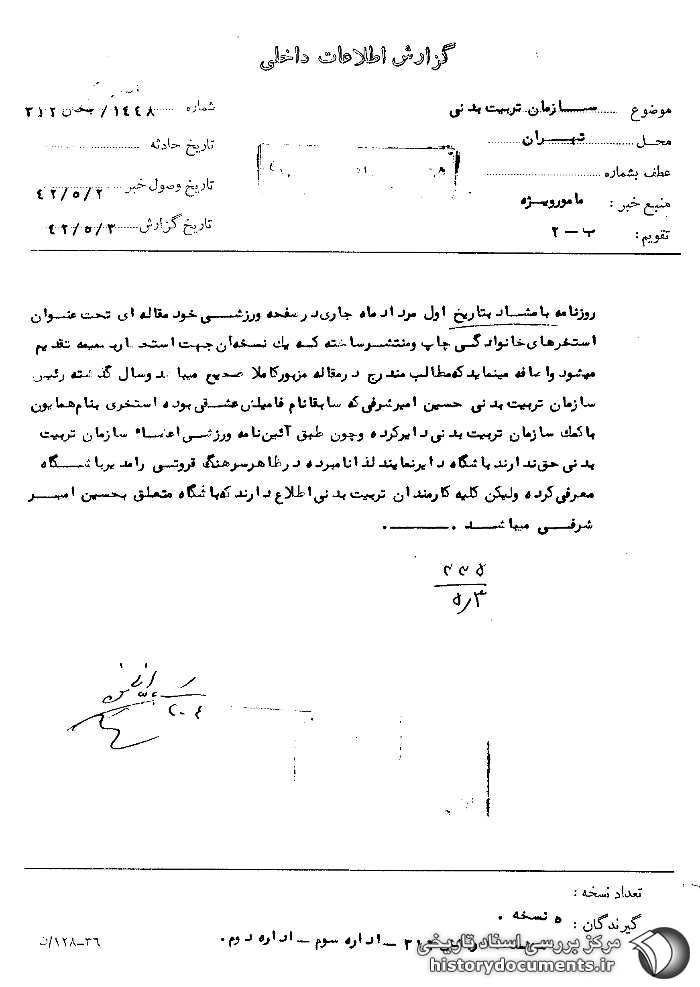 گزارش اطلاعات داخلی
موضوع سازمان تربیت بدنی
شماره ۱۴۴۸ / بخش ۳۱۲
محل تهران
تاریخ حادثه
عطف بشماره
تاریخ وصول خبر ۴۲/۵/۲
منبع خبر : مامور ویژه
تاریخ گزارش ۴۲/۵/۳
تقویم : ب – ۲
روزنامه بامشاد بتاریخ اول مرداد ماه جاری در صفحه ورزشی خود مقاله ای تحت عنوان
استخرهای خانوادگی چاپ و منتشر ساخته که یک نسخه آن جهت استحضار بضمیمه تقدیم
میشود و اضافه مینماید که مطالب مندرج در مقاله مزبور کاملا صحیح میباشد و سال گذشته رئیس
سازمان تربیت بدنی حسین امیر شرفی که سابقا نام فامیلش عشقی بوده استخری بنام همایون
با کمک سازمان تربیت بدنی دایر کرده و چون طبق آئین نامه ورزشی اعضاء سازمان تربیت
بدنی حق ندارند باشگاه دایر نمایند لذا نامبرده در ظاهر سرهنگ قروتی را مدیر باشگاه
معرفی کرده ولیکن کلیه کارمندان تربیت بدنی اطلاع دارند که باشگاه متعلق بحسین امیر
شرفی میباشد .
۵/۳
تعداد نسخه :
گیرندگان : ۵ نسخه .
اداره سوم – اداره دوم .
۳۶–۱۲۸/ت
مرکز بررسی اسناد تاریخی
historydocuments.ir